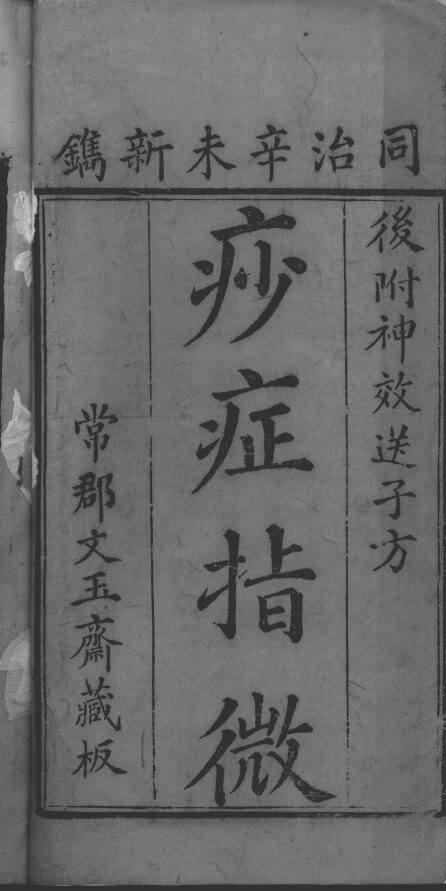 同治辛未新鐫
後附神效送子方
痧症指微
常郡文玉齋藏板